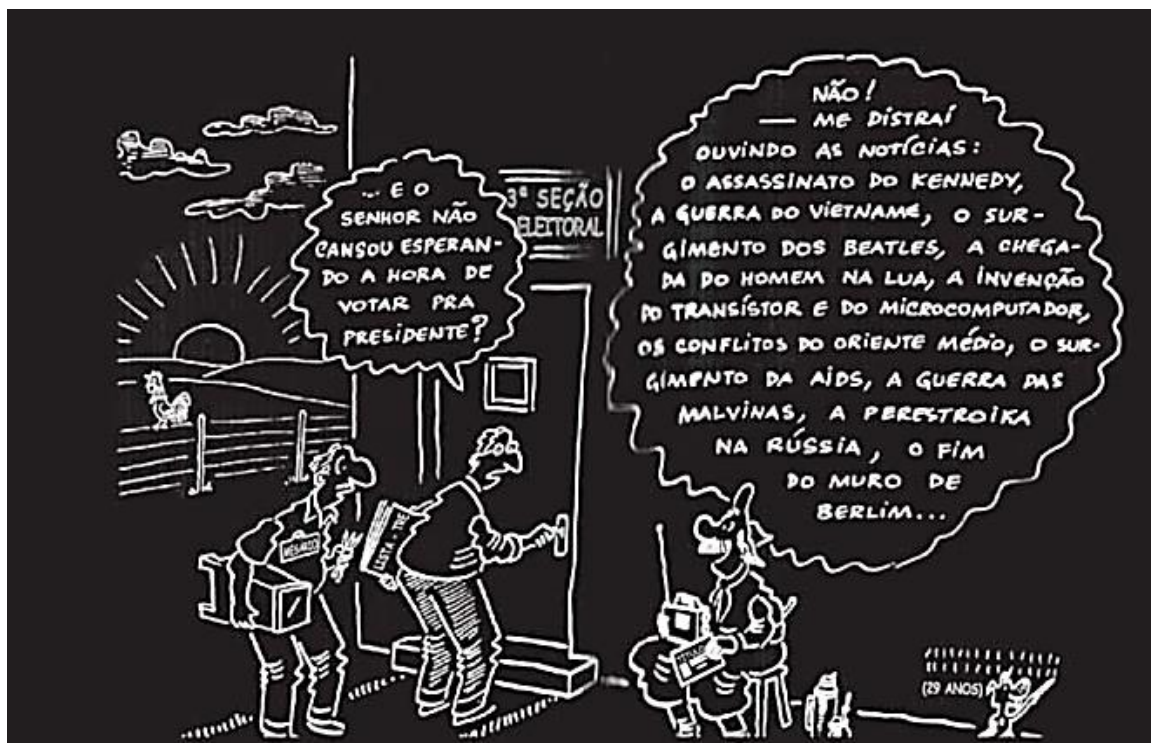 ... E O
SENHOR NÃO
CANSOU ESPERAN-
DO A HORA DE
VOTAR PRA
PRESIDENTE?
3ª SEÇÃO
ELEITORAL
NÃO!
— ME DISTRAÍ
OUVINDO AS NOTÍCIAS:
O ASSASSINATO DO KENNEDY,
A GUERRA DO VIETNAME, O SUR-
GIMENTO DOS BEATLES, A CHEGA-
DA DO HOMEM NA LUA, A INVENÇÃO
DO TRANSÍSTOR E DO MICROCOMPUTADOR,
OS CONFLITOS DO ORIENTE MÉDIO, O SUR-
GIMENTO DA AIDS, A GUERRA DAS
MALVINAS, A PERESTROIKA
NA RÚSSIA, O FIM
DO MURO DE
BERLIM...
MESÁRIO
LISTA - TRE
TÍTULO
(29 ANOS)